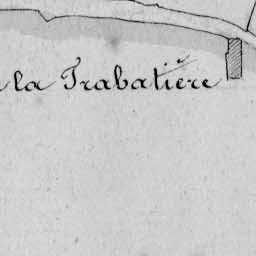 la Trabatière